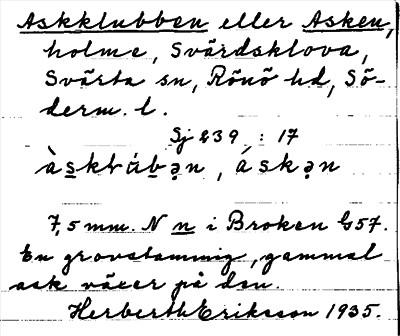 Askklubben eller Asken,
holme, Svärdsklova,
Svärta sn, Rönö hd, Sö-
derm. l.
Sj 239 : 17
àskłúbən, áskən
7,5 mm. N n i Broken G57.
En grovstammig, gammal
ask växer på den.
Herberth Eriksson 1935.